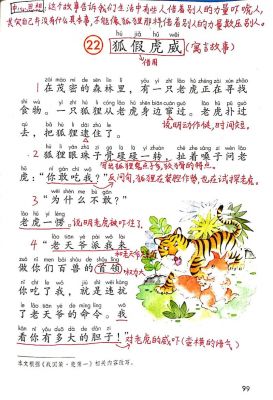 中心思想:这个故事告诉我们生活中有些人借着别人的力量吓唬人,
其实自己并没有什么真本事,不能像狐狸那样借着别人的力量欺压别人。
hú jiǎ hǔ wēi
22 狐假虎威(寓言故事)
借用
zài máo mì de sēn lín lǐ yǒu yì zhī lǎo hǔ zhèng zài xún zhǎo
1 在茂密的森林里,有一只老虎正在寻找
食物。一只狐狸从老虎身边窜过。老虎扑过
去,把狐狸逮住了。说明动作快,时间短。
2 狐狸眼珠子骨碌碌一转,扯着嗓子问老
虎:“你敢吃我?”
wèi shén me bù gǎn
3 “为什么不敢?”
老虎一愣。说明老虎被吓住了
lǎo tiān yé pài wǒ lái
4 “老天爷派我来
做你们百兽的首领,
你吃了我,就是违抗
了老天爷的命令。我
kàn nǐ yǒu duō dà de dǎn zi
看你有多大的胆子!”对老虎的威吓(蛮横的语气)
本文根据《战国策·楚策一》相关内容改写。
99